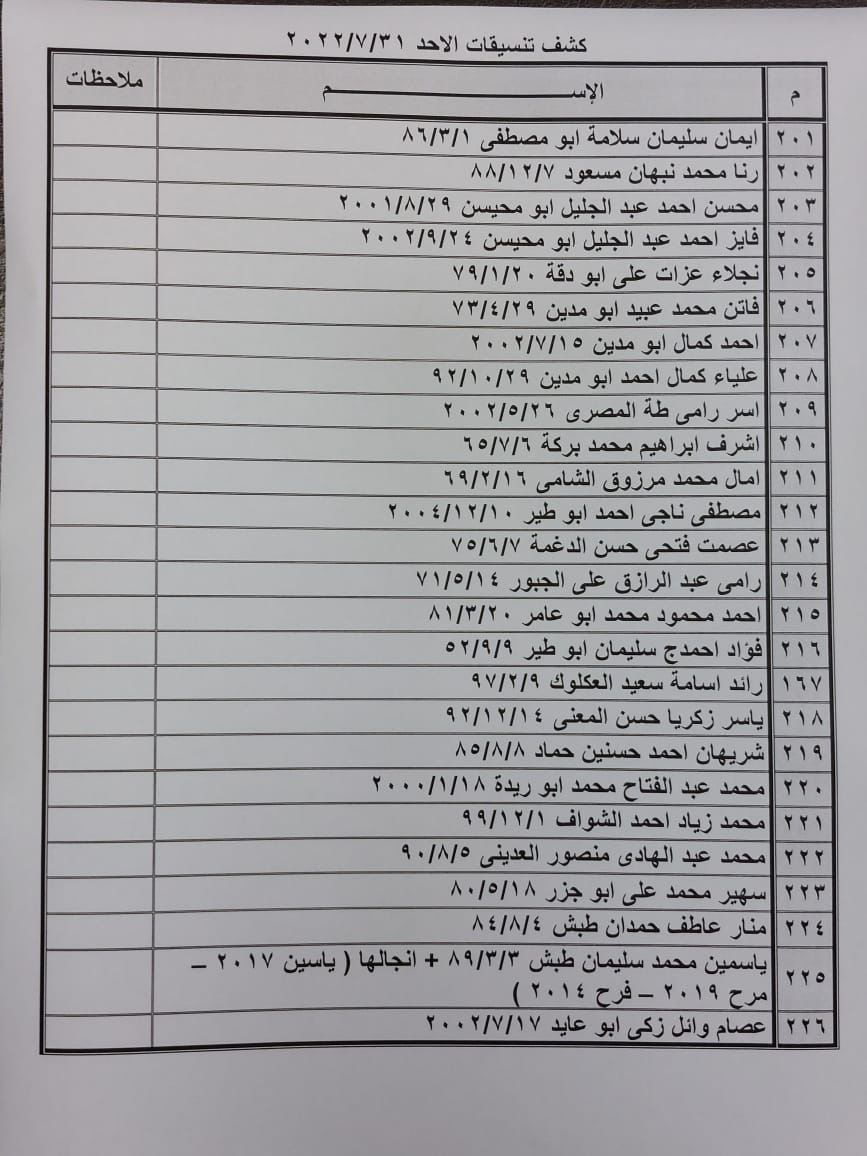 كشف تنسيقات الاحد ٢٠٢٢/٧/٣١
م الإســـــــــــــــــم ملاحظات
٢٠١ ايمان سليمان سلامة ابو مصطفى ٨٦/٣/١
٢٠٢ رنا محمد نبهان مسعود ٨٨/١٢/٧
٢٠٣ محسن احمد عبد الجليل ابو محيسن ٢٠٠١/٨/٢٩
٢٠٤ فايز احمد عبد الجليل ابو محيسن ٢٠٠٢/٩/٢٤
٢٠٥ نجلاء عزات على ابو دقة ٧٩/١/٢٠
٢٠٦ فاتن محمد عبيد ابو مدين ٧٣/٤/٢٩
٢٠٧ احمد كمال ابو مدين ٢٠٠٢/٧/١٥
٢٠٨ علياء كمال احمد ابو مدين ٩٢/١٠/٢٩
٢٠٩ اسر رامى طة المصرى ٢٠٠٢/٥/٢٦
٢١٠ اشرف ابراهيم محمد بركة ٦٥/٧/٦
٢١١ امال محمد مرزوق الشامى ٦٩/٢/١٦
٢١٢ مصطفى ناجى احمد ابو طير ٢٠٠٤/١٢/١٠
٢١٣ عصمت فتحى حسن الدغمة ٧٥/٦/٧
٢١٤ رامى عبد الرازق على الجبور ٧١/٥/١٤
٢١٥ احمد محمود محمد ابو عامر ٨١/٣/٢٠
٢١٦ فؤاد احمدج سليمان ابو طير ٥٢/٩/٩
١٦٧ رائد اسامة سعيد العكلوك ٩٧/٢/٩
٢١٨ ياسر زكريا حسن المعنى ٩٢/١٢/١٤
٢١٩ شريهان احمد حسنين حماد ٨٥/٨/٨
٢٢٠ محمد عبد الفتاح محمد ابو ريدة ٢٠٠٠/١/١٨
٢٢١ محمد زياد احمد الشواف ٩٩/١٢/١
٢٢٢ محمد عبد الهادى منصور العدينى ٩٠/٨/٥
٢٢٣ سهير محمد على ابو جزر ٨٠/٥/١٨
٢٢٤ منار عاطف حمدان طبش ٨٤/٨/٤
٢٢٥ ياسمين محمد سليمان طبش ٨٩/٣/٣ + انجالها ( ياسين ٢٠١٧ –
مرح ٢٠١٩ – فرح ٢٠١٤ )
٢٢٦ عصام وائل زكى ابو عايد ٢٠٠٢/٧/١٧